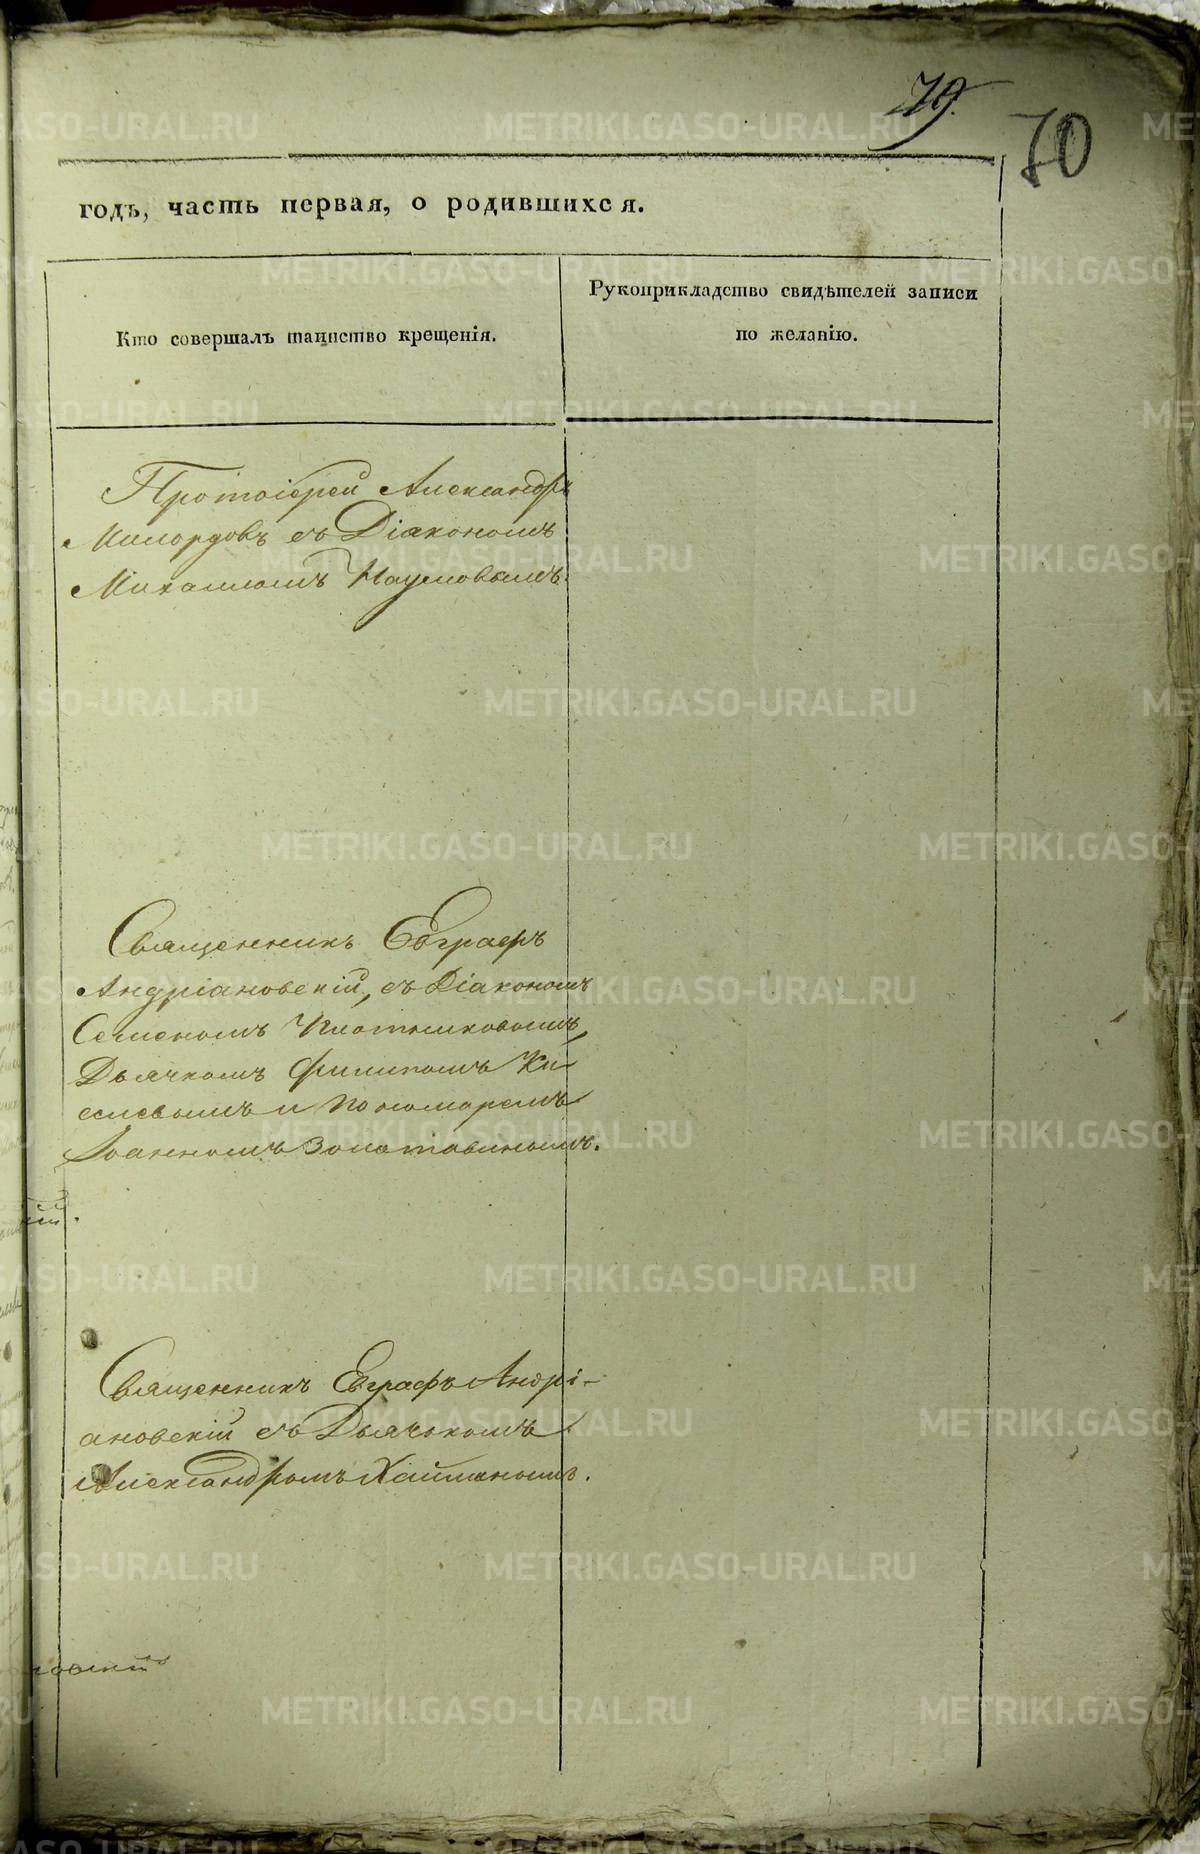 79.
70
годъ, часть первая, о родившихся.
Кто совершалъ таинство крещенія.
Рукоприкладство свидѣтелей записи
по желанію.
Протоіерей Александръ
Милордовъ съ Діакономъ
Михаиломъ Наумовымъ.
Священникъ Евграфъ
Андріановскій, съ Діакономъ
Семеномъ Плотниковымъ,
Дьячкомъ Филипомъ Ки-
селевымъ и пономаремъ
Іоанномъ Золотавинымъ.
Священникъ Евграфъ Андрі-
ановскій съ Дьячькомъ
Александромъ Хайминымъ.
METRIKI.GASO-URAL.RU